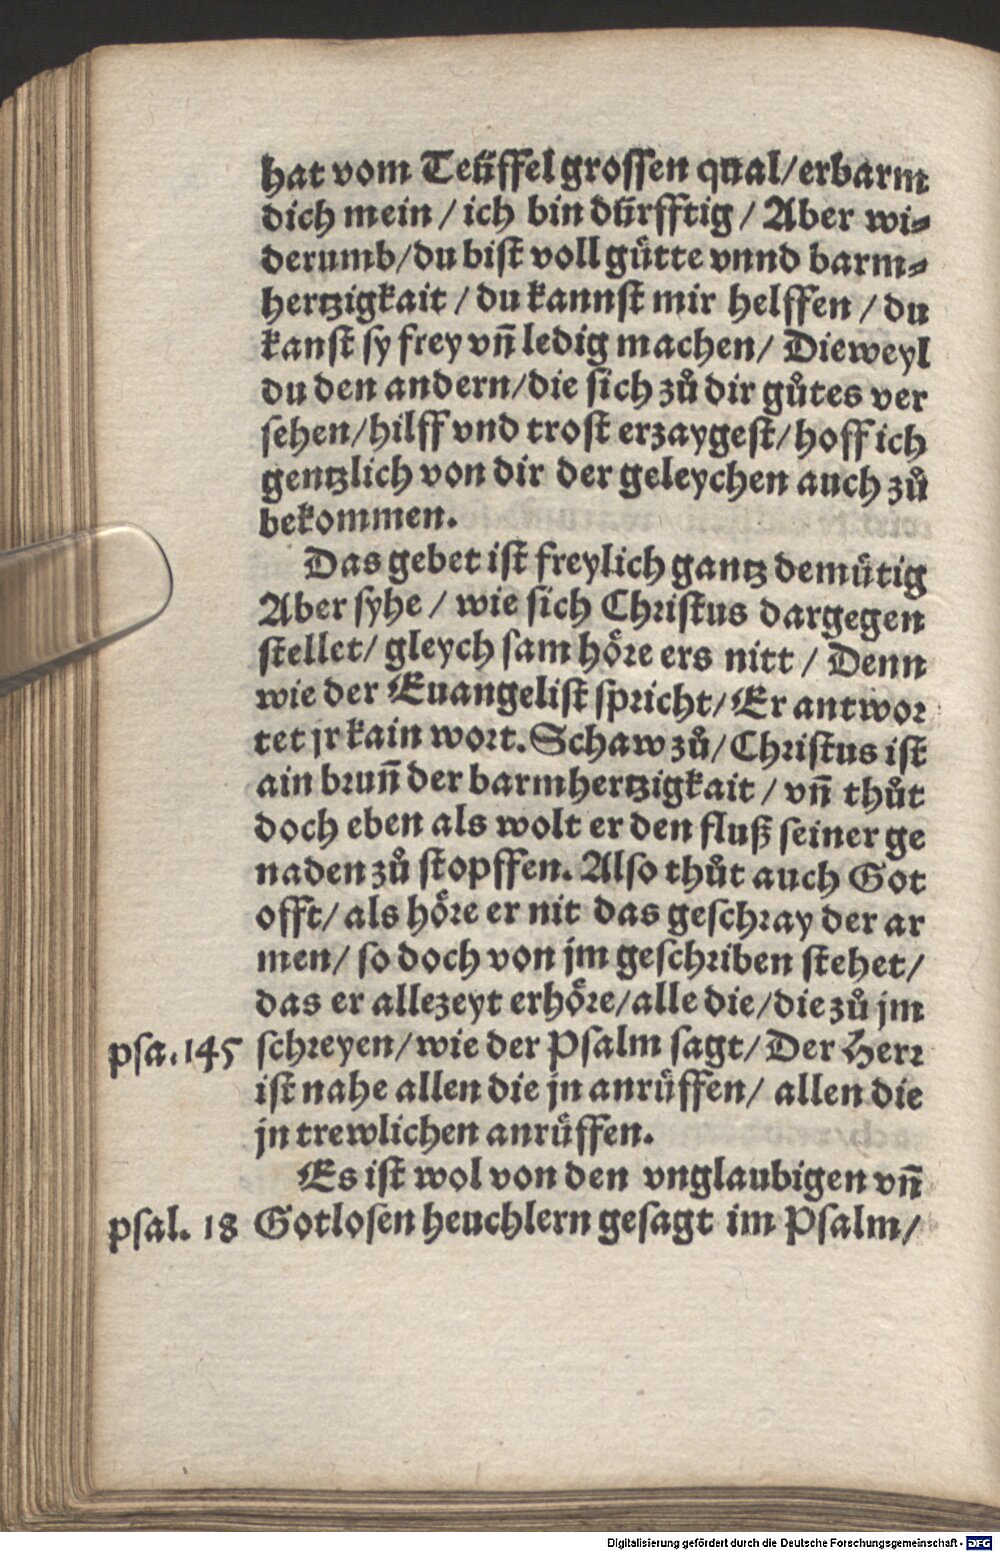 hat vom Teüffel grossen qual/erbarm
dich mein / ich bin dürfftig / Aber wi⸗
derumb/du bist voll gütte vnnd barm⸗
hertzigkait / du kannst mir helffen / du
kanst sy frey vñ ledig machen/ Dieweyl
du den andern/die sich zů dir gůtes ver
sehen/hilff vnd trost erzaygest/hoff ich
gentzlich von dir der geleychen auch zů
bekommen.
Das gebet ist freylich gantz demütig
Aber syhe / wie sich Christus dargegen
stellet/ gleych sam höre ers nitt / Denn
wie der Euangelist spricht/Er antwor
tet jr kain wort. Schaw zů/Christus ist
ain brunñ der barmhertzigkait / vñ thůt
doch eben als wolt er den fluß seiner ge
naden zů stopffen. Also thůt auch Got
offt/ als höre er nit das geschray der ar
men/ so doch von jm geschriben stehet/
das er allezeyt erhöre/alle die/die zů jm
psa.145 schreyen/wie der Psalm sagt/Der Herr
ist nahe allen die jn anrüffen/ allen die
jn trewlichen anrüffen.
Es ist wol von den vnglaubigen vñ
psal. 18 Gotlosen heuchlern gesagt im Psalm/
Digitalisierung gefördert durch die Deutsche Forschungsgemeinschaft - DFG